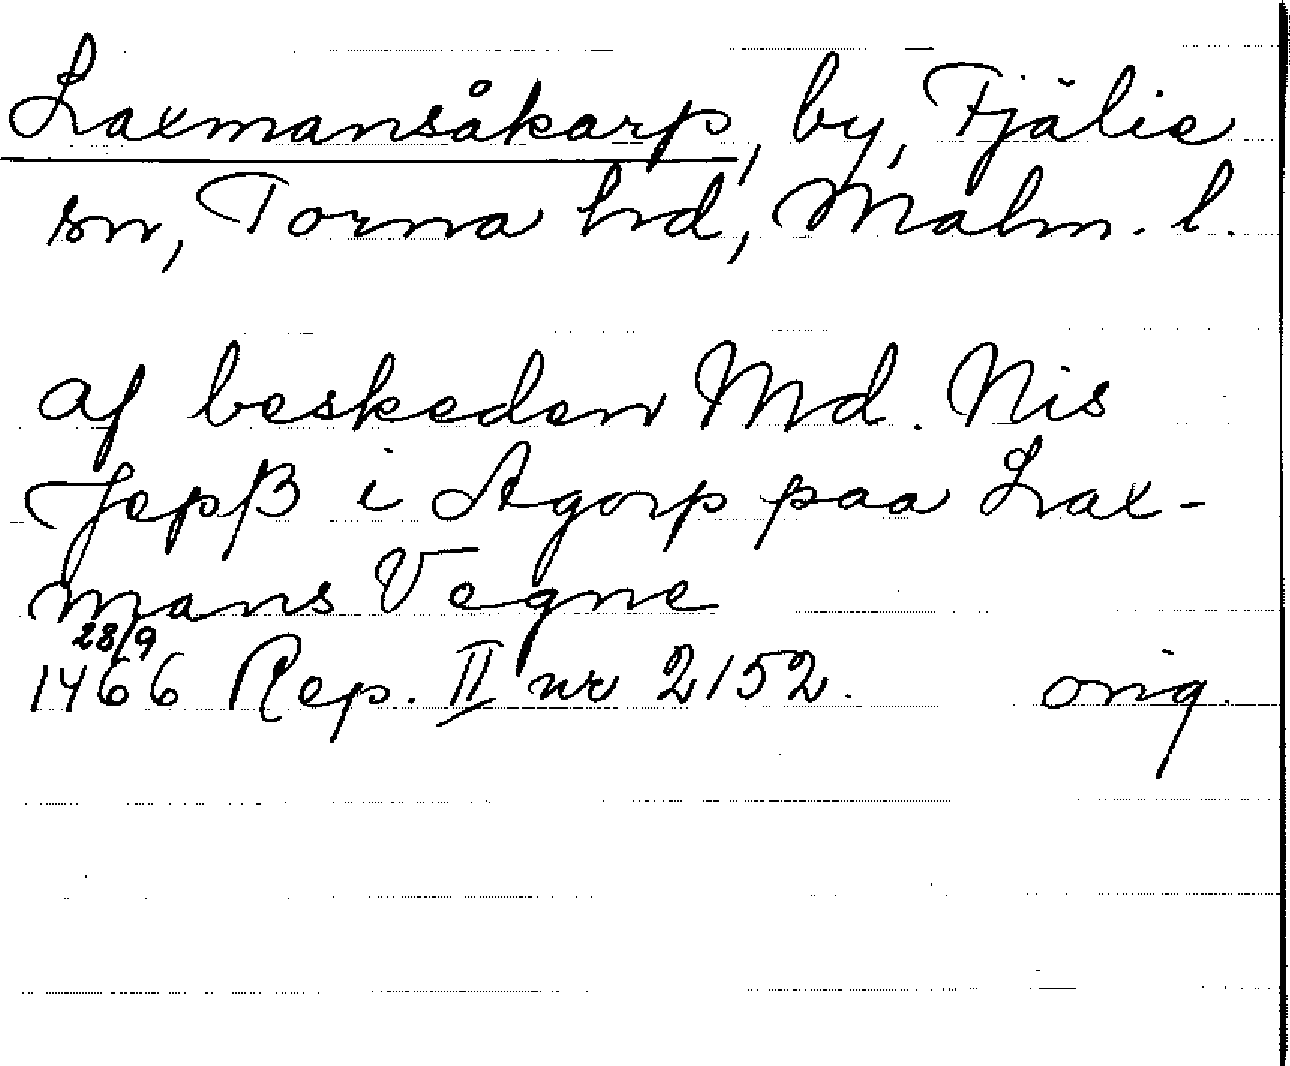 Laxmansåkarp, by, Fjälie
sn, Torna hd, Malm. l.
af beskeden Md. Nis
Jepß i Agorp paa Lax-
mans Vegne
28/9
1466 Rep. II nr 2152. orig.